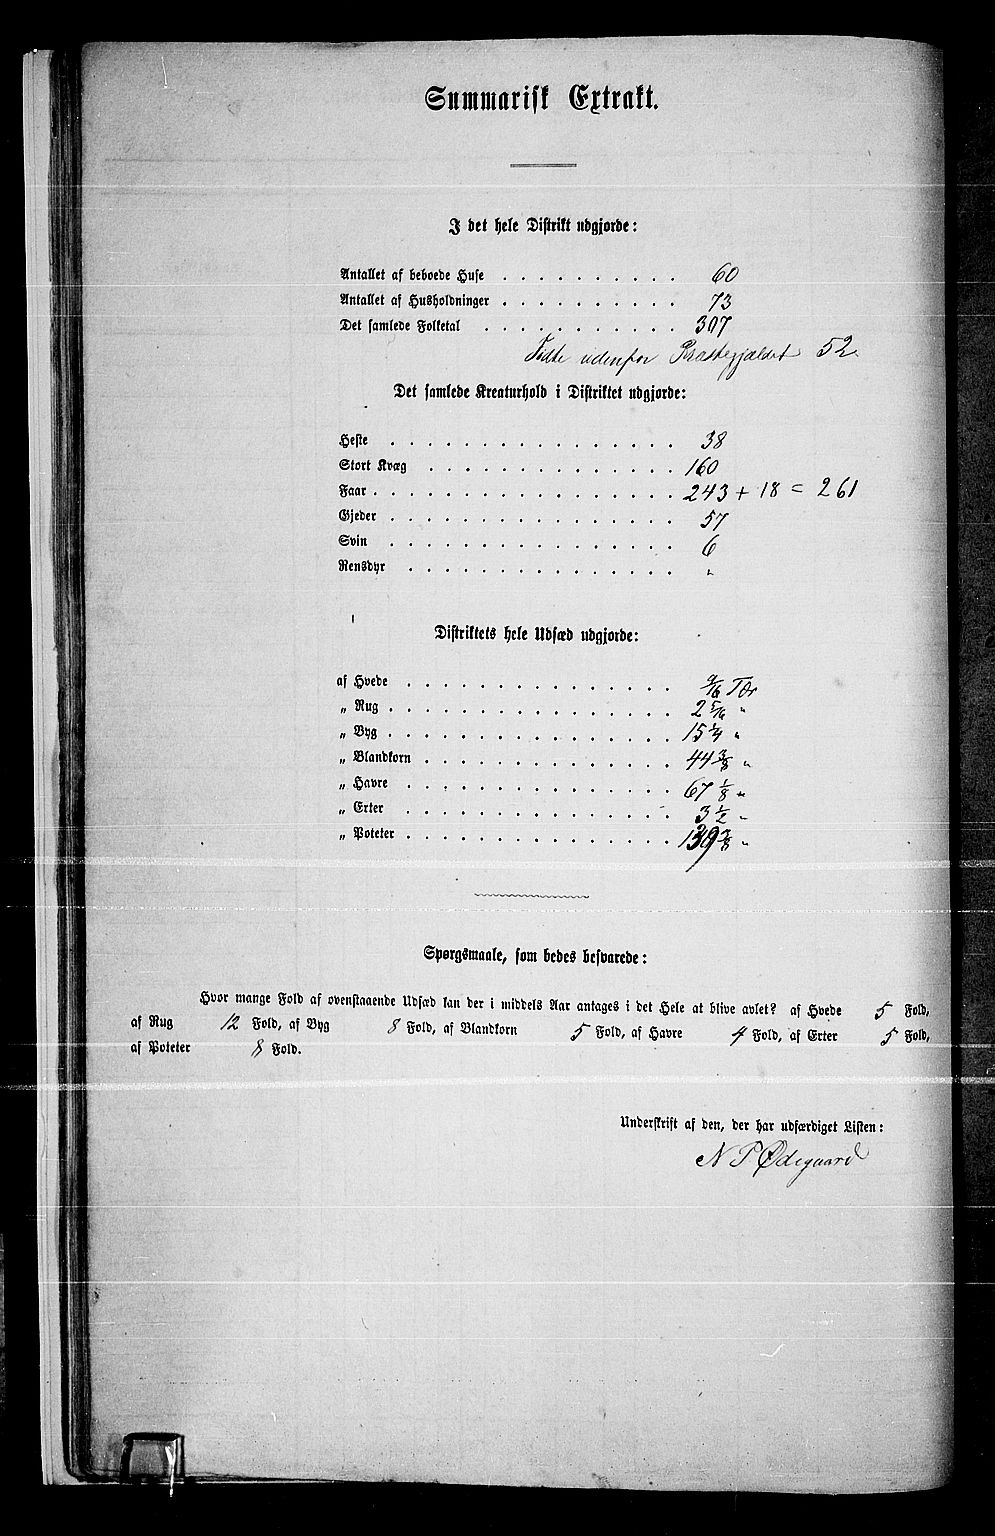 Summarisk Extrakt.
I det hele Distrikt udgjorde:
Antallet af beboede Huse . . . . . . . . . . 60
Antallet af Husholdninger . . . . . . . . . . 73
Det samlede Folketal . . . . . . . . . . . 307
Fødte udenfor Præstegjældet 52
Det samlede Kreaturhold i Distriktet udgjorde:
Heste . . . . . . . . . . . . . . . . 38
Stort Kvæg . . . . . . . . . . . . . . 160
Faar . . . . . . . . . . . . . . . . . 243 + 18 = 261
Gjeder . . . . . . . . . . . . . . . . 57
Svin . . . . . . . . . . . . . . . . 6
Rensdyr . . . . . . . . . . . . . . . "
Distriktets hele Udsæd udgjorde:
af Hvede . . . . . . . . . . . . . . . 9/16 Tdr
„ Rug . . . . . . . . . . . . . . . . 2 5/16 "
„ Byg . . . . . . . . . . . . . . . . 15 1/4 "
„ Blandkorn . . . . . . . . . . . . . . 44 3/8 "
„ Havre . . . . . . . . . . . . . . . 67 1/8 "
„ Erter . . . . . . . . . . . . . . . 3 1/2 "
„ Poteter . . . . . . . . . . . . . . . 139 3/8 "
Spørgsmaale, som bedes besvarede:
Hvor mange Fold af ovenstaaende Udsæd kan der i middels Aar antages i det Hele at blive avlet? af Hvede 5 Fold,
af Rug 12 Fold, af Byg 8 Fold, af Blandkorn 5 Fold, af Havre 4 Fold, af Erter 5 Fold,
af Poteter 8 Fold.
Underskrift af den, der har udfærdiget Listen:
N P Ødegaard